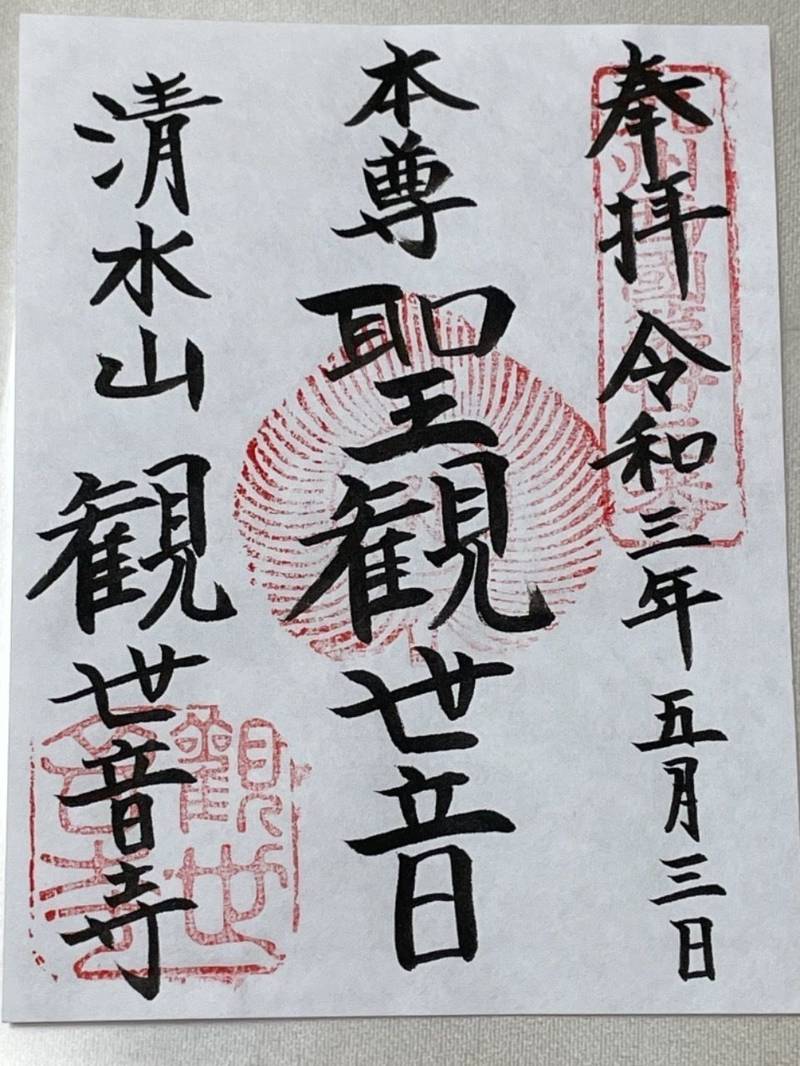 奉拝 令和三年五月三日
本尊 聖観世音
清水山 観世音寺
觀世音寺